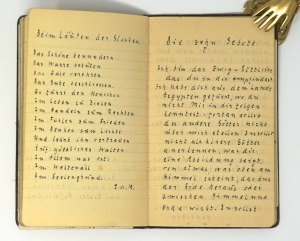 Beim Läuten der Glocken.
Das Schöne bewundern
Das Wahre behüten
Das Edle verehren
Das Gute beschliessen.
Es führet den Menschen
Im Leben zu Zielen
Im Handeln zum Rechten
Im Fühlen zum Frieden
Im Denken zum Lichte
Und lehrt ihn vertrauen
Auf göttliches Walten
In Allem was ist:
Im Weltenall
Im Seelengrund.
Die zehn Gebote
I
Ich bin das Ewig-Göttliche,
das du in dir empfindest.
Ich habe dich aus dem Lande
Aegypten geführt, wo du
nicht Mir in dir folgen
konntest. Fortan sollst
du andere Götter nicht
über mich stellen. Du sollst
nicht als höhere Götter
anerkennen, was dir
eine Abbildung zeigt,
von etwas, was oben am
Himmel scheint, das aus
der Erde heraus oder
zwischen Himmel und
Erde wirkt. Du sollst